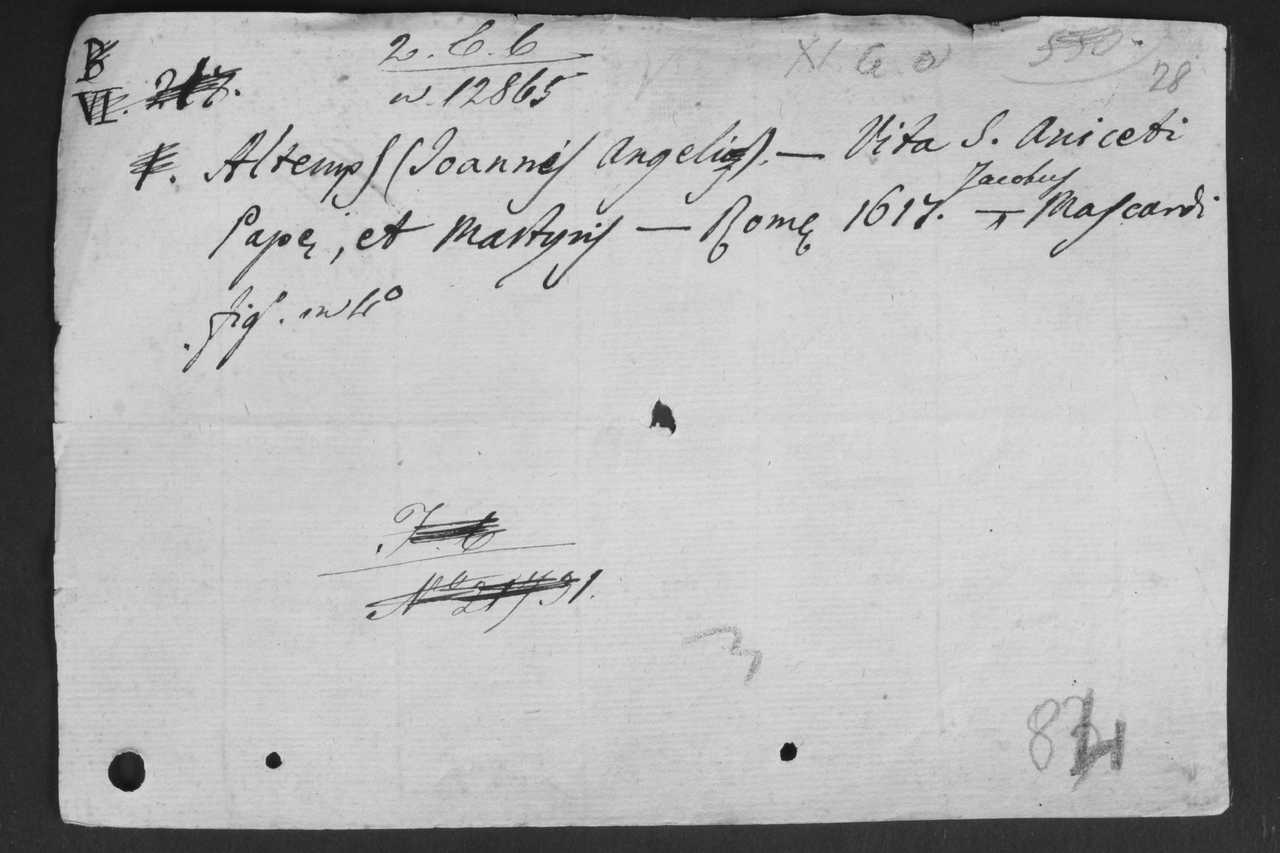 B
VI. 217.
2. E. 6
n. 12865
XI. G. a
550.
28
Altemps (Joannis Angeli). — Vita S. Aniceti
Papę, et Martyris — Romę 1617. — Jacobus Mascardi
fig. in 4º
N.º 21731.
3
834